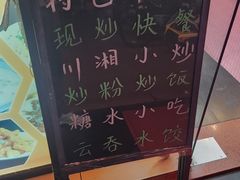 特色
现炒快餐
川湘小炒
炒粉炒饭
糖水小吃
云吞水饺